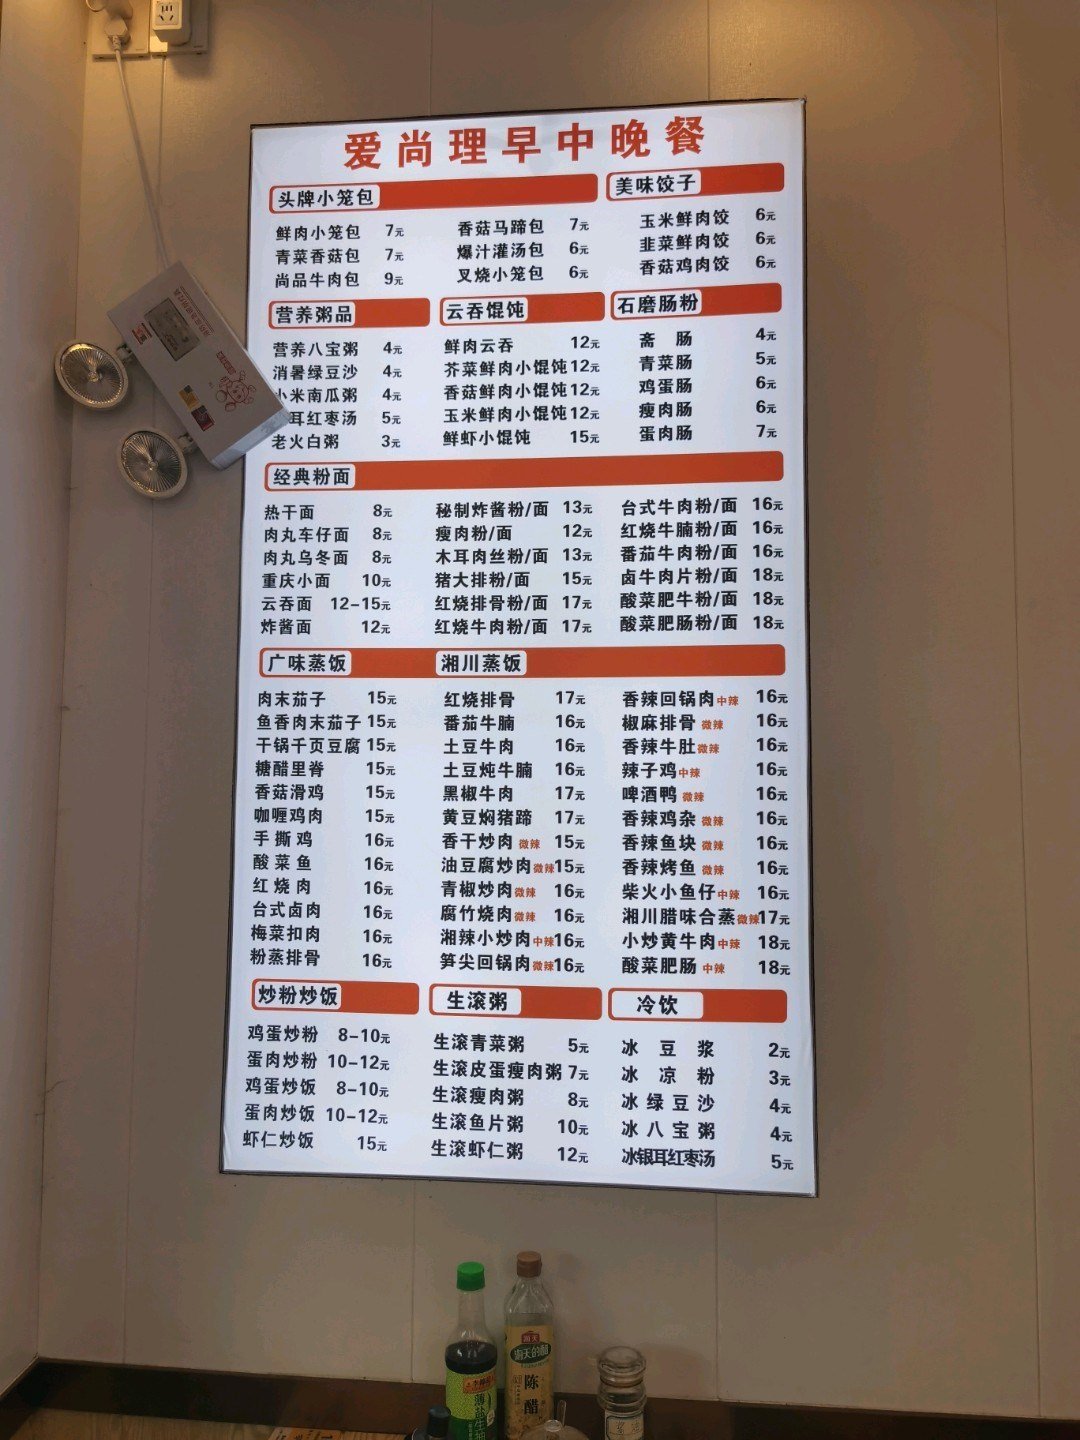 爱尚理早中晚餐
头牌小笼包
鲜肉小笼包 7元
青菜香菇包 7元
尚品牛肉包 9元
香菇马蹄包 7元
爆汁灌汤包 6元
叉烧小笼包 6元
美味饺子
玉米鲜肉饺 6元
韭菜鲜肉饺 6元
香菇鸡肉饺 6元
营养粥品
营养八宝粥 4元
消暑绿豆沙 4元
小米南瓜粥 4元
耳红枣汤 5元
老火白粥 3元
云吞馄饨
鲜肉云吞 12元
芥菜鲜肉小馄饨 12元
香菇鲜肉小馄饨 12元
玉米鲜肉小馄饨 12元
鲜虾小馄饨 15元
石磨肠粉
斋 肠 4元
青菜肠 5元
鸡蛋肠 6元
瘦肉肠 6元
蛋肉肠 7元
经典粉面
热干面 8元
肉丸车仔面 8元
肉丸乌冬面 8元
重庆小面 10元
云吞面 12-15元
炸酱面 12元
秘制炸酱粉/面 13元
瘦肉粉/面 12元
木耳肉丝粉/面 13元
猪大排粉/面 15元
红烧排骨粉/面 17元
红烧牛肉粉/面 17元
台式牛肉粉/面 16元
红烧牛腩粉/面 16元
番茄牛肉粉/面 16元
卤牛肉片粉/面 18元
酸菜肥牛粉/面 18元
酸菜肥肠粉/面 18元
广味蒸饭
肉末茄子 15元
鱼香肉末茄子 15元
干锅千页豆腐 15元
糖醋里脊 15元
香菇滑鸡 15元
咖喱鸡肉 15元
手撕鸡 16元
酸菜鱼 16元
红烧肉 16元
台式卤肉 16元
梅菜扣肉 16元
粉蒸排骨 16元
湘川蒸饭
红烧排骨 17元
番茄牛腩 16元
土豆牛肉 16元
土豆炖牛腩 16元
黑椒牛肉 17元
黄豆焖猪蹄 17元
香干炒肉 微辣 15元
油豆腐炒肉 微辣 15元
青椒炒肉 微辣 16元
腐竹烧肉 微辣 16元
湘辣小炒肉 中辣 16元
笋尖回锅肉 微辣 16元
香辣回锅肉 中辣 16元
椒麻排骨 微辣 16元
香辣牛肚 微辣 16元
辣子鸡 中辣 16元
啤酒鸭 微辣 16元
香辣鸡杂 微辣 16元
香辣鱼块 微辣 16元
香辣烤鱼 微辣 16元
柴火小鱼仔 中辣 16元
湘川腊味合蒸 微辣 17元
小炒黄牛肉 中辣 18元
酸菜肥肠 中辣 18元
炒粉炒饭
鸡蛋炒粉 8-10元
蛋肉炒粉 10-12元
鸡蛋炒饭 8-10元
蛋肉炒饭 10-12元
虾仁炒饭 15元
生滚粥
生滚青菜粥 5元
生滚皮蛋瘦肉粥 7元
生滚瘦肉粥 8元
生滚鱼片粥 10元
生滚虾仁粥 12元
冷饮
冰豆浆 2元
冰凉粉 3元
冰绿豆沙 4元
冰八宝粥 4元
冰银耳红枣汤 5元
海天
陈醋